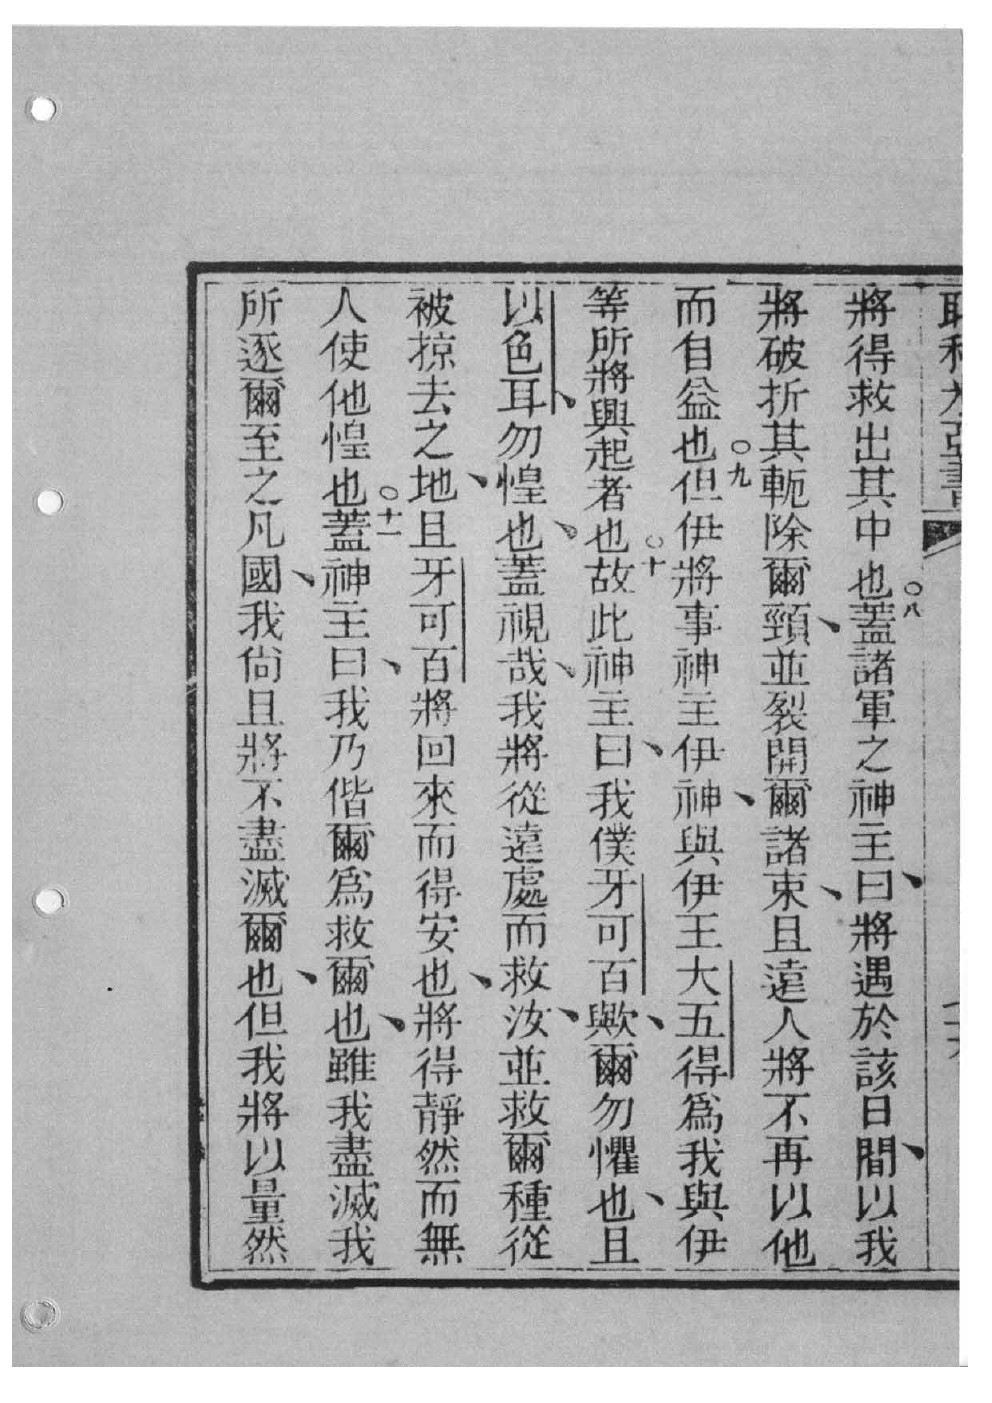 將得救出其中也○八蓋諸軍之神主曰將遇於該日間以我
將破折其軛除爾頸並裂開爾諸束且遠人將不再以他
而自益也○九但伊將事神主伊神與伊王大五得為我與伊
等所將興起者也○十故此神主曰我僕牙可百歟爾勿懼也且
以色耳勿惶也蓋視哉我將從遠處而救汝並救爾種從
被掠去之地且牙可百將回來而得安也將得靜然而無
人使他惶也○十一蓋神主曰我乃偕爾為救爾也雖我盡滅我
所逐爾至之凡國我尙且將不盡滅爾也但我將以量然